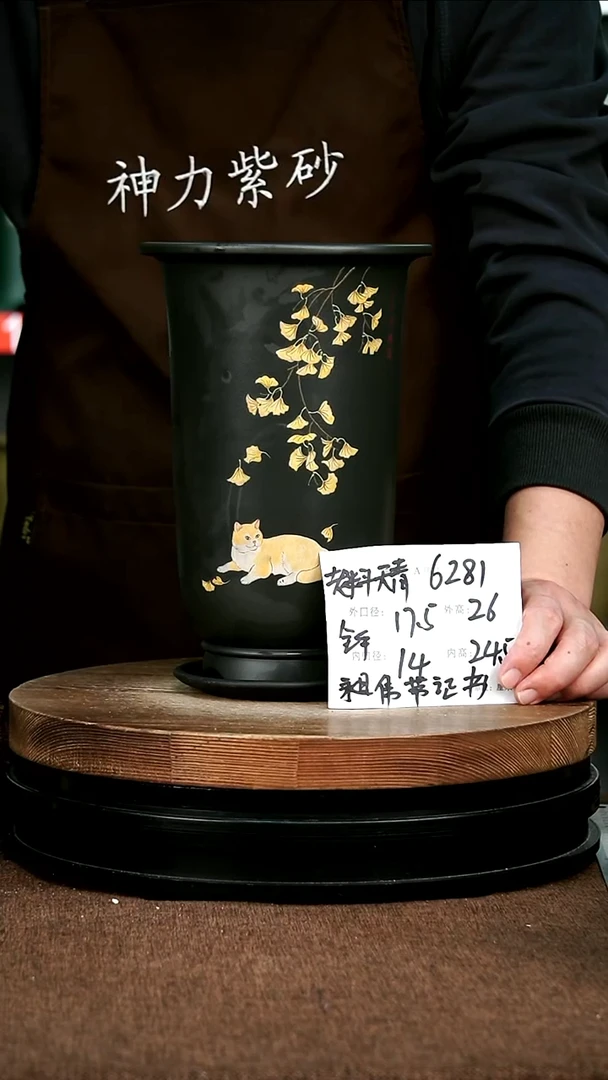 神力紫砂
天青 6281
外口径: 17.5 外高: 26
全手
内口径: 14 内高: 24.5
永伟 带证书